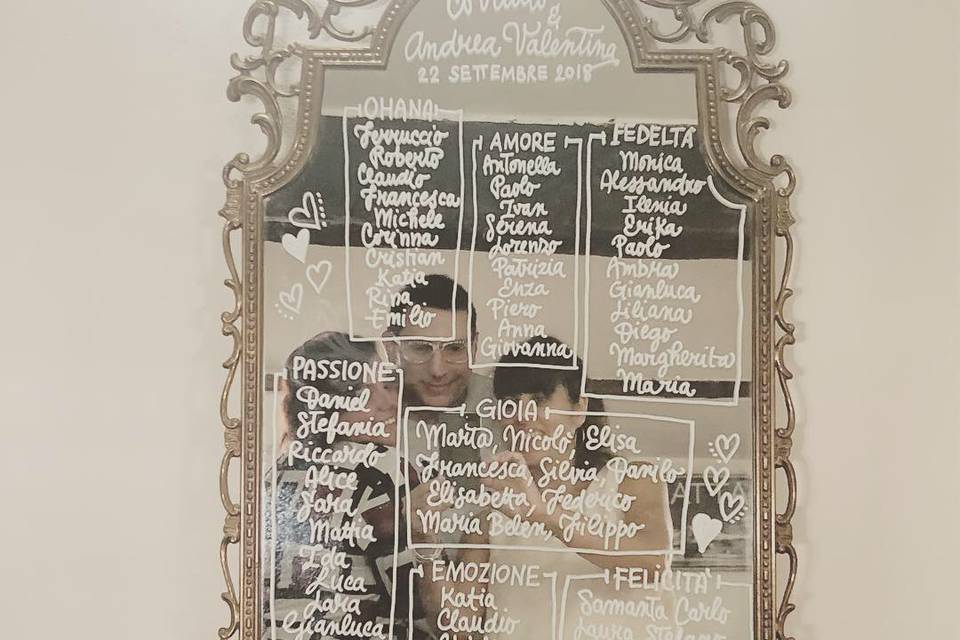 &
Andrea Valentina
22 SETTEMBRE 2018
OHANA
Ferruccio
Roberto
Claudio
Francesca
Michele
Corinna
Cristian
Katia
Rina
Emilio
AMORE
Antonella
Paolo
Ivan
Serena
Lorenzo
Patrizia
Enza
Piero
Anna
Giovanna
FEDELTÀ
Monica
Alessandro
Ilenia
Erika
Paolo
Ambra
Gianluca
Liliana
Diego
Margherita
Maria
PASSIONE
Daniel
Stefania
Riccardo
Alice
Sara
Mattia
Ida
Luca
Lara
Gianluca
GIOIA
Marta, Nicolò, Elisa
Francesca, Silvia, Danilo
Elisabetta, Federico
Maria Belen, Filippo
EMOZIONE
Katia
Claudio
FELICITÀ
Samanta Carlo
Laura Stefano